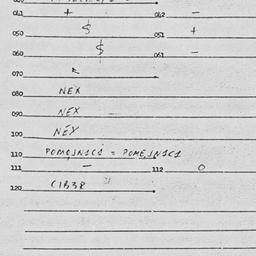 041 + 042 -
050 $ 051 +
060 $ 061 -
070
080 NEX
090 NEX
100 NEX
110 POMOJN1C1 = POMEJN1C1
111 - 112 0
120 C1B38